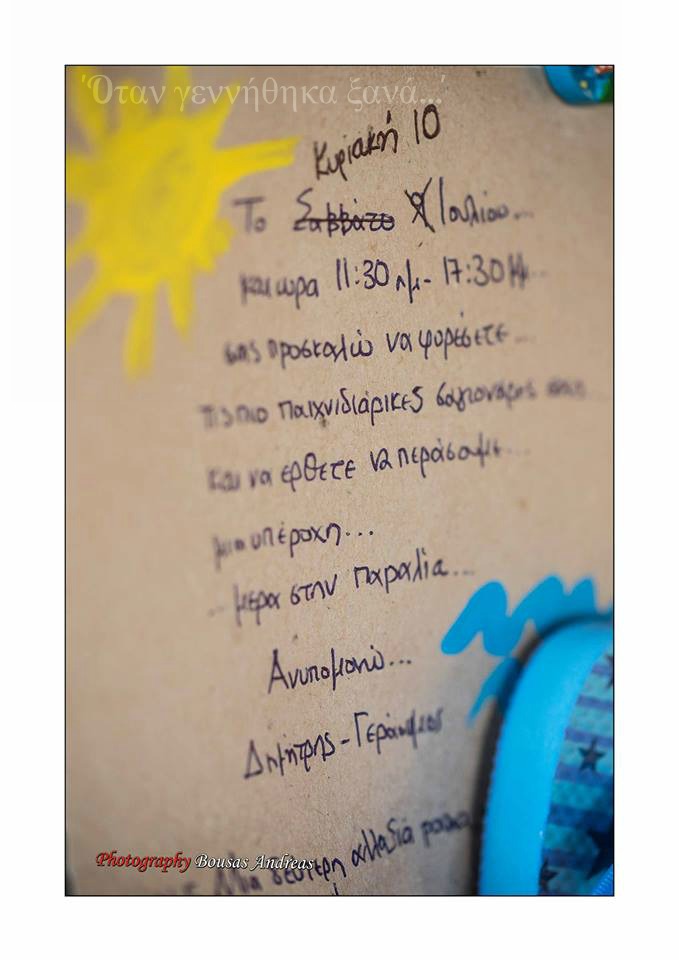 'Όταν γεννήθηκα ξανά...'
Κυριακή 10
Το Σαββάτο 9 Ιουλίου...
και ωρα 11:30 πμ - 17:30 μμ...
σας προσκαλώ να φορέσετε...
τις πιο παιχνιδιάρικες σαγιονάρες σας...
και να έρθετε να περάσουμε...
μια υπέροχη...
... μέρα στην παραλία...
Ανυπομονώ...
Δημήτρης - Γεράσιμος
Μια δεύτερη αλλαξιά ρούχα
Photography Bousas Andreas